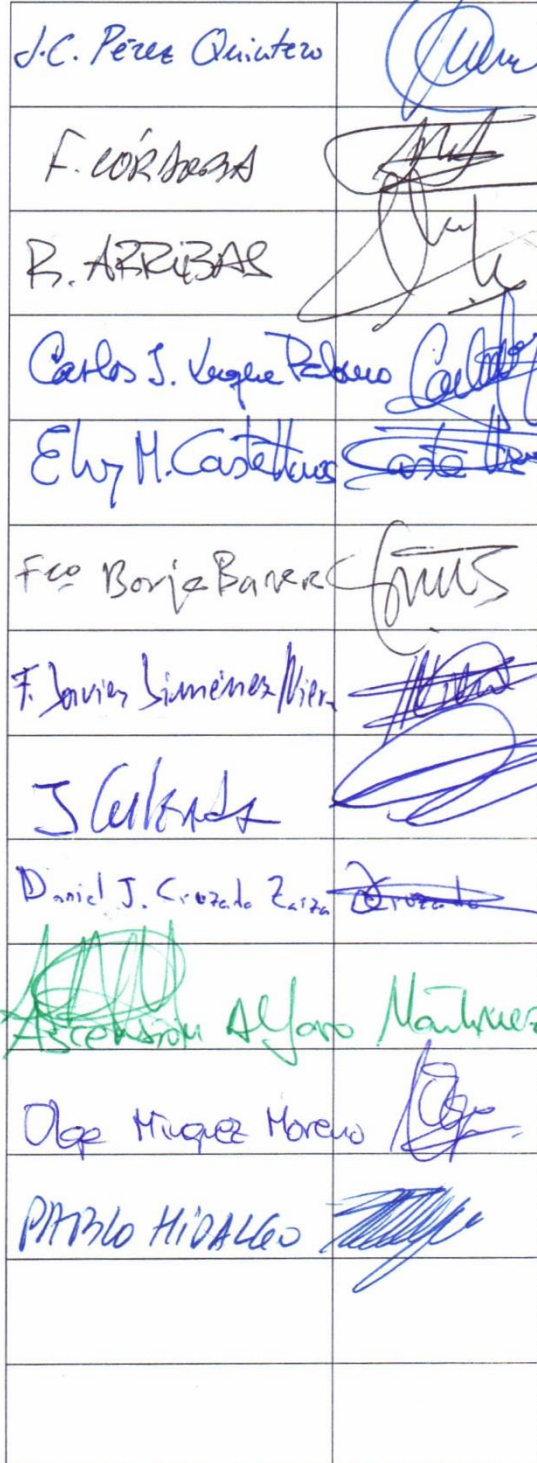 J.C. Pérez Quintero
F. CÓRDOBA
R. ARRIBAS
Carlos J. Luque Palomo
Eloy M. Castellanos
Fco Borja Barrera
F. Javier Jiménez Nieva
Daniel J. Cruzado Zaiza Cruzado
Ascensión Alfaro Martínez
Olga Minguez Moreno
PABLO HIDALGO